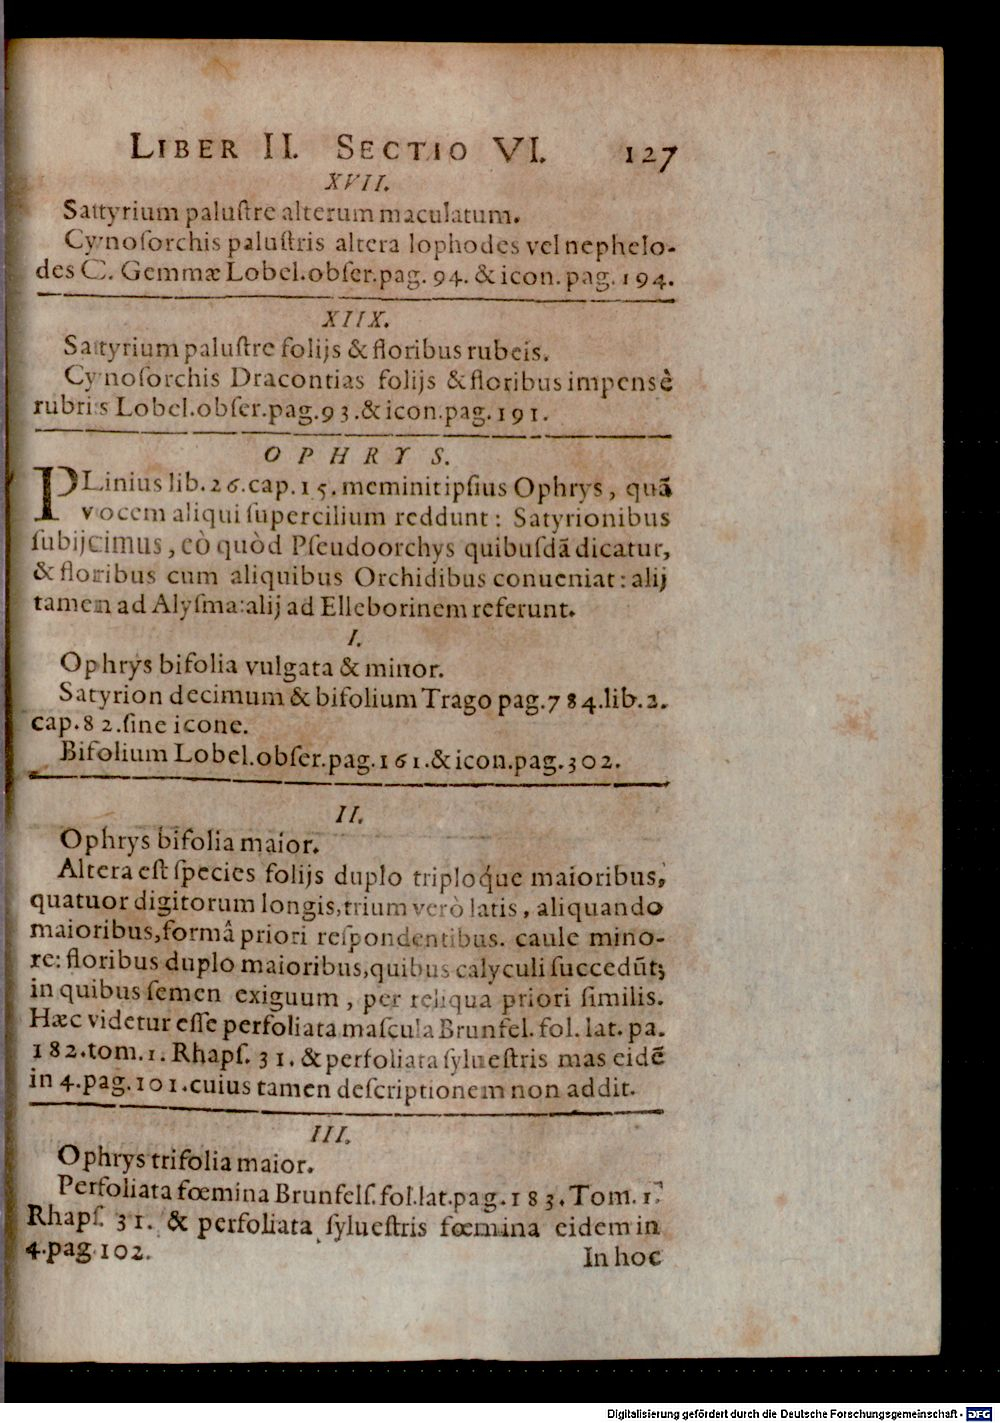 LIBER II. SECTIO VI. 127
XVII.
Sattyrium paluſtre alterum maculatum.
Cynoſorchis paluſtris altera lophodes vel nephelo-
des C. Gemmæ Lobel.obſer.pag. 94. & icon. pag. 194.
XIIX.
Sattyrium paluſtre folijs & floribus rubeis.
Cynoſorchis Dracontias folijs & floribus impensè
rubris Lobel.obſer.pag.93.& icon.pag.191.
OPHRYS.
PLinius lib.26.cap.15.meminit ipſius Ophrys, quã
vocem aliqui ſupercilium reddunt: Satyrionibus
ſubijcimus, eò quòd Pſeudoorchys quibuſdã dicatur,
& floribus cum aliquibus Orchidibus conueniat: alij
tamen ad Alyſma:alij ad Elleborinem referunt.
I.
Ophrys bifolia vulgata & minor.
Satyrion decimum & bifolium Trago pag.784.lib.2.
cap.82.ſine icone.
Bifolium Lobel.obſer.pag.161.& icon.pag.302.
II.
Ophrys bifolia maior.
Altera eſt ſpecies folijs duplo triploq́ue maioribus,
quatuor digitorum longis,trium verò latis, aliquando
maioribus,formâ priori reſpondentibus. caule mino-
re: floribus duplo maioribus,quibus calyculi ſuccedũt;
in quibus ſemen exiguum, per reliqua priori ſimilis.
Hæc videtur eſſe perfoliata maſcula Brunfel. fol. lat. pa.
182.tom.1. Rhapſ. 31. & perfoliata ſylueſtris mas eidẽ
in 4.pag.101.cuius tamen deſcriptionem non addit.
III.
Ophrys trifolia maior.
Perfoliata fœmina Brunfelſ.fol.lat.pag.183.Tom.1.
Rhapſ. 31. & perfoliata ſylueſtris fœmina eidem in
4.pag.102.
In hoc
Digitalisierung gefördert durch die Deutsche Forschungsgemeinschaft - DFG